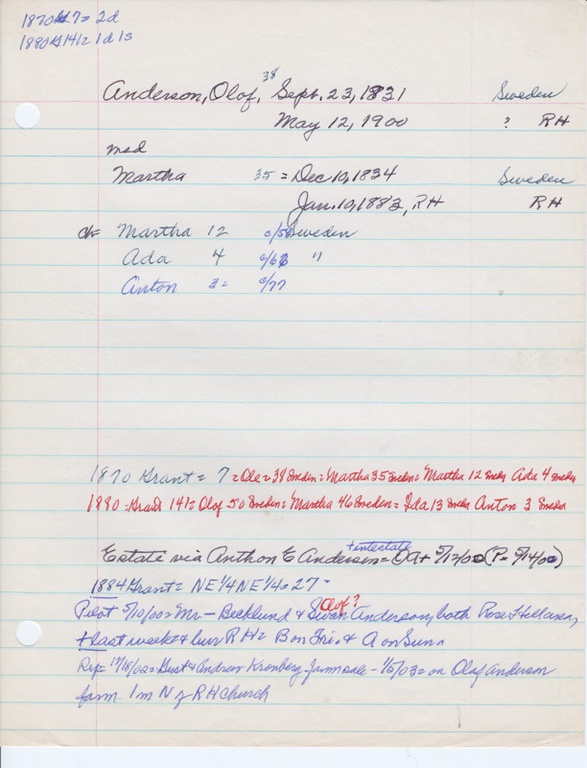 1870 7 = 2d
1880 141 = 1d 1s
38
Anderson, Olof, Sept. 23, 1831 Sweden
May 12, 1900 ? RH
md
Martha 35 = Dec 10, 1834 Sweden
Jan. 10, 1883, RH RH
ch = Martha 12 c/58 Sweden
Ada 4 c/66 "
Anton 3 = c/77
1870 Grant = 7 = Ole = 38 Sweden = Martha 35 Sweden = Martha 12 Sweden Ada 4 Sweden
1880 = Grant 141 = Olof 50 Sweden = Martha 46 Sweden = Ida 13 Sweden Anton 3 Sweden
+ intestate
Estate via Anthon E Anderson = OA + 5/12/00 (P = 5/14/00)
1884 Grant = NE 1/4 NE 1/4 = 27 -
Olof?
Pilot 5/10/00 = Mr - Becklund & Swan Anderson, both Rose Hillarea,
+ last week & bur RH = B on Fri. & A on Sun.
Rep = 12/18/02 = Gust & Andrew Kronberg farm sale - 1/6/03 = on Olaf Anderson
farm 1 m N of RH Church